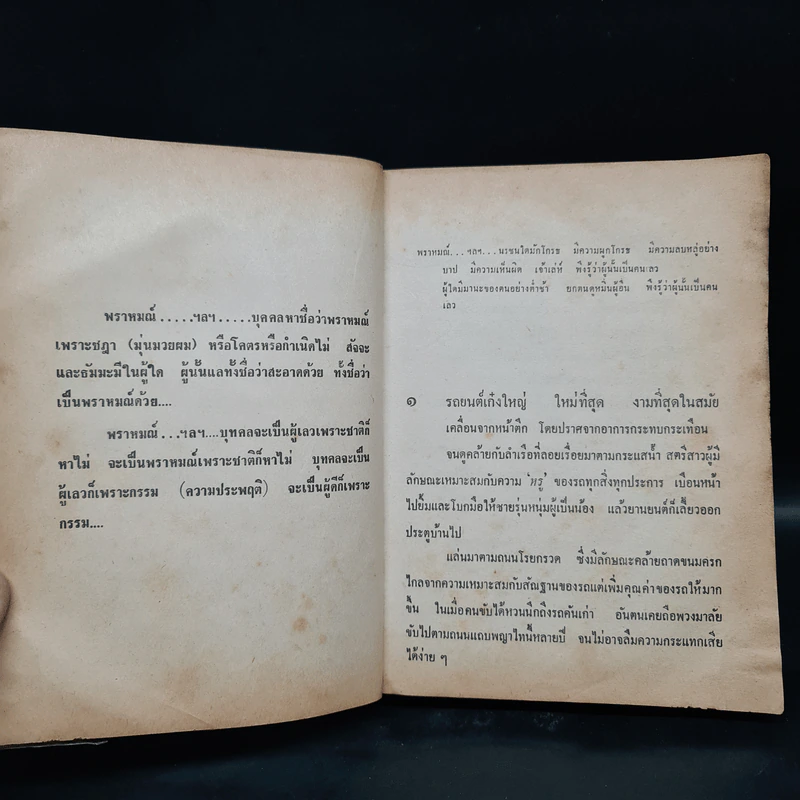 พราหมณ์.....ฯลฯ.....บุคคลหาชื่อว่าพราหมณ์
เพราะชฎา (มุ่นมวยผม) หรือโคตรหรือกำเนิดไม่ สัจจะ
และธัมมะมีในผู้ใด ผู้นั้นแลทั้งชื่อว่าสะอาดด้วย ทั้งชื่อว่า
เป็นพราหมณ์ด้วย....
พราหมณ์...ฯลฯ....บุทคลจะเป็นผู้เลวเพราะชาติก็
หาไม่ จะเป็นพราหมณ์เพราะชาติก็หาไม่ บุทคลจะเป็น
ผู้เลวก็เพราะกรรม (ความประพฤติ) จะเป็นผู้ดีก็เพราะ
กรรม....
พราหมณ์...ฯลฯ...นรชนใดมักโกรธ มีความผูกโกรธ มีความลบหลู่อย่าง
บาป มีความเห็นผิด เจ้าเล่ห์ พึงรู้ว่าผู้นั้นเป็นคนเลว
ผู้ใดมีมานะของตนอย่างต่ำช้า ยกตนดูหมิ่นผู้อื่น พึงรู้ว่าผู้นั้นเป็นคน
เลว
๑ รถยนต์เก๋งใหญ่ ใหม่ที่สุด งามที่สุดในสมัย
เคลื่อนจากหน้าตึก โดยปราศจากอาการกระทบกระเทือน
จนดูคล้ายกับลำเรือที่ลอยเรื่อยมาตามกระแสน้ำ สตรีสาวผู้มี
ลักษณะเหมาะสมกับความ 'หรู' ของรถทุกสิ่งทุกประการ เบือนหน้า
ไปยิ้มและโบกมือให้ชายรุ่นหนุ่มผู้เป็นน้อง แล้วยานยนต์ก็เลี้ยวออก
ประตูบ้านไป
แล่นมาตามถนนโรยกรวด ซึ่งมีลักษณะคล้ายถาดขนมครก
ไกลจากความเหมาะสมกับสัณฐานของรถแต่เพิ่มคุณค่าของรถให้มาก
ขึ้น ในเมื่อคนขับได้หวนนึกถึงรถคันเก่า อันตนเคยถือพวงมาลัย
ขับไปตามถนนแถบพญาไทนี้หลายปี จนไม่อาจลืมความกระแทกเสีย
ได้ง่าย ๆ